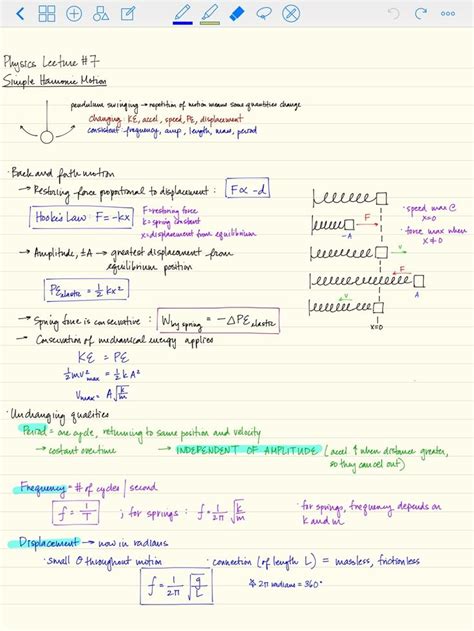 Physics Lecture #7
Simple Harmonic Motion
pendulum swinging → repetition of motion means some quantities change
changing : KE, accel, speed, PE, displacement
consistent : frequency, amp, length, mass, period
· Back and forth motion
→ Restoring force proportional to displacement : F∝ -d
Hooke's Law : F = -kx
F = restoring force
k = spring constant
x = displacement from equilibrium
→ Amplitude, ±A → greatest displacement from
equilibrium position
PE elastic = 1/2 kx²
→ Spring force is conservative : W by spring = -ΔPE elastic
→ Conservation of mechanical energy applies
KE = PE
1/2 mv² max = 1/2 kA²
V max = A√k/m
· speed max @
x=0
· force max when
x≠0
F
-A
v
F
A
v
x=0
· Unchanging qualities
Period = one cycle, returning to same position and velocity
→ constant overtime
→ INDEPENDENT OF AMPLITUDE (accel ↑ when distance greater,
so they cancel out)
Frequency = # of cycles / second
f = 1/T ; for springs : f = 1/2π √k/m
· for springs, frequency depends on
k and m
Displacement → now in radians
· small θ throughout motion
· connection (of length L) = massless, frictionless
f = 1/2π √g/L
* 2π radians = 360°